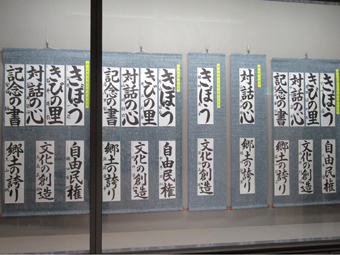 きぼう
きびの里
対話の心
記念の書
自由民権
文化の創造
郷土の誇り
きぼう
きびの里
対話の心
記念の書
自由民権
文化の創造
郷土の誇り
きぼう
文化の創造
対話の心
郷土の誇り
きぼう
きびの里
対話の心
記念の書
自由民権
文化の創造
郷土の誇り